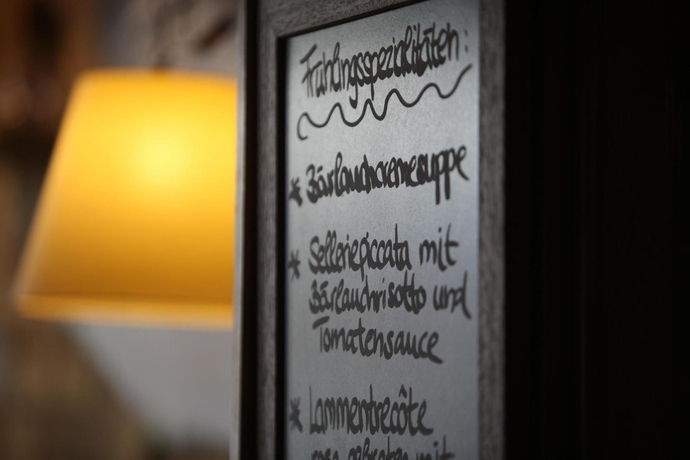 Frühlingsspezialitäten:
* Bärlauchcremesuppe
* Selleriepiccata mit
Bärlauchrisotto und
Tomatensauce
* Lammentrecôte
rosa gebraten mit